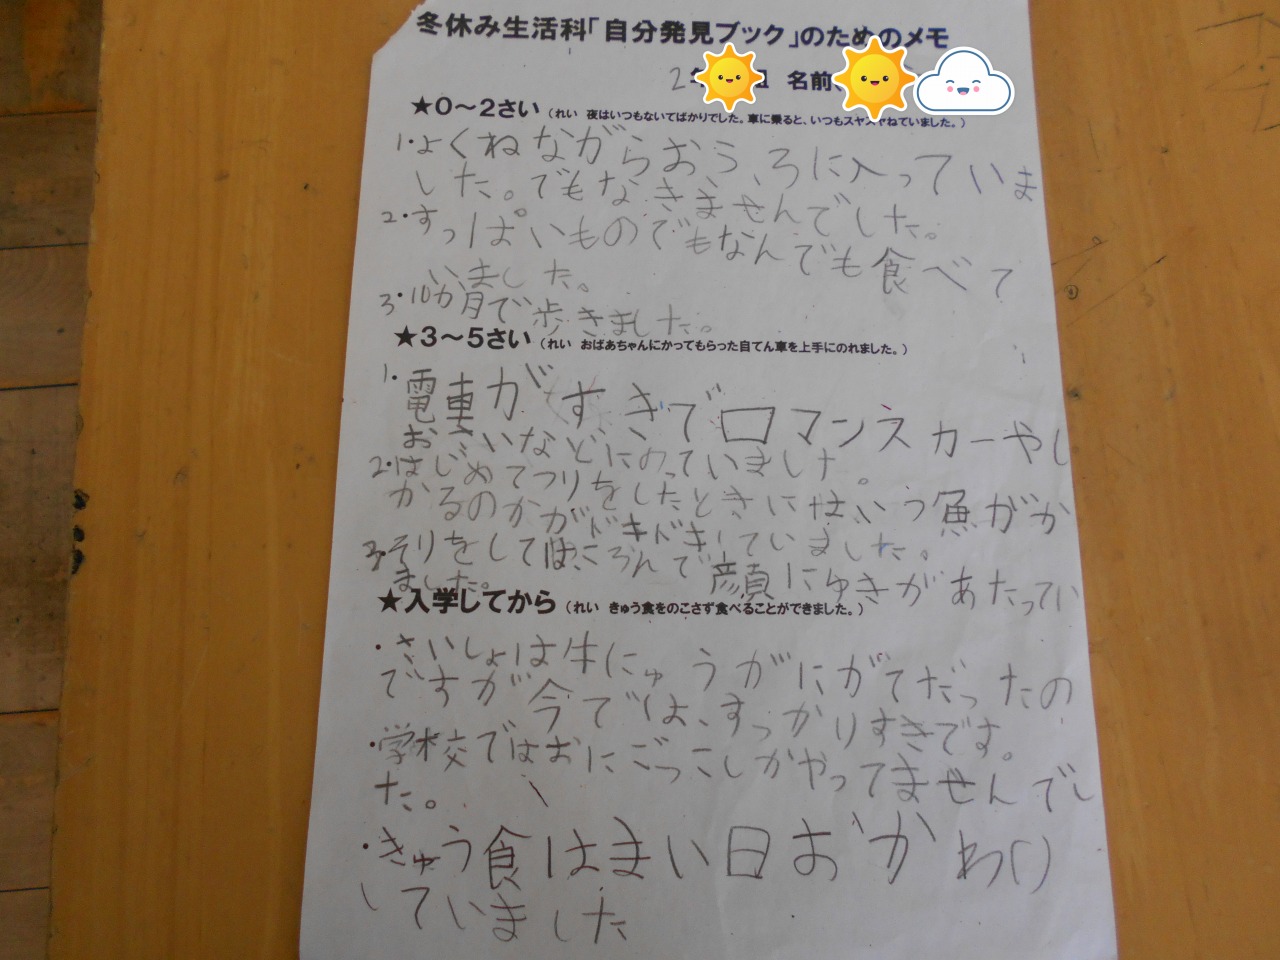 冬休み生活科「自分発見ブック」のためのメモ
2年 組 名前
★0～2さい（れい 夜はいつもないてばかりでした。車に乗ると、いつもスヤスヤねていました。）
1.よくねながらおうろに入っていま
した。でもなきませんでした。
2.すっぱいものでもなんでも食べて
いました。
3.10か月で歩きました。
★3～5さい（れい おばあちゃんにかってもらった自てん車を上手にのれました。）
1.電車がすきでロマンスカーやし
おさいなどにのっていました。
2.はじめてつりをしたときにはいつ魚がか
かるのかがドキドキしていました。
3.そりをしてはころんで顔にゆきがあたってい
ました。
★入学してから（れい きゅう食をのこさず食べることができました。）
・さいしょは牛にゅうがにがてだったの
ですが今では、すっかりすきです。
・学校ではおにごっこしかやってませんでし
た。
・きゅう食はまい日おかわり
していました